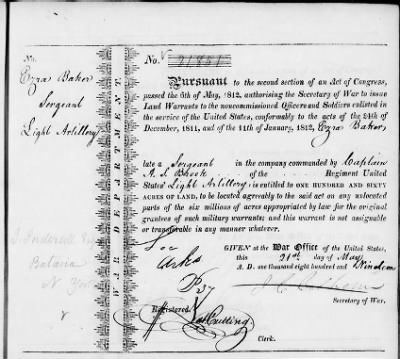 No.
Ezra Baker
Sergeant
Light Artillery
Batavia
N York
WAR DEPARTMENT.
No. 21851
Pursuant to the second section of an Act of Congress,
passed the 6th of May, 1812, authorising the Secretary of War to issue
Land Warrants to the noncommissioned Officers and Soldiers enlisted in
the service of the United States, conformably to the acts of the 24th of
December, 1811, and of the 11th of January, 1812, Ezra Baker,
late a Sergeant in the company commanded by Captain
of the Regiment United
States' Light Artillery, is entitled to ONE HUNDRED AND SIXTY
ACRES OF LAND, to be located agreeably to the said act on any unlocated
parts of the six millions of acres appropriated by law for the original
grantees of such military warrants; and this warrant is not assignable
or transferable in any manner whatever.
GIVEN at the War Office of the United States,
this 21st day of May
A. D. one thousand eight hundred and Nineteen
J. C. Calhoun
Secretary of War.
Registered
Cutting
Clerk.